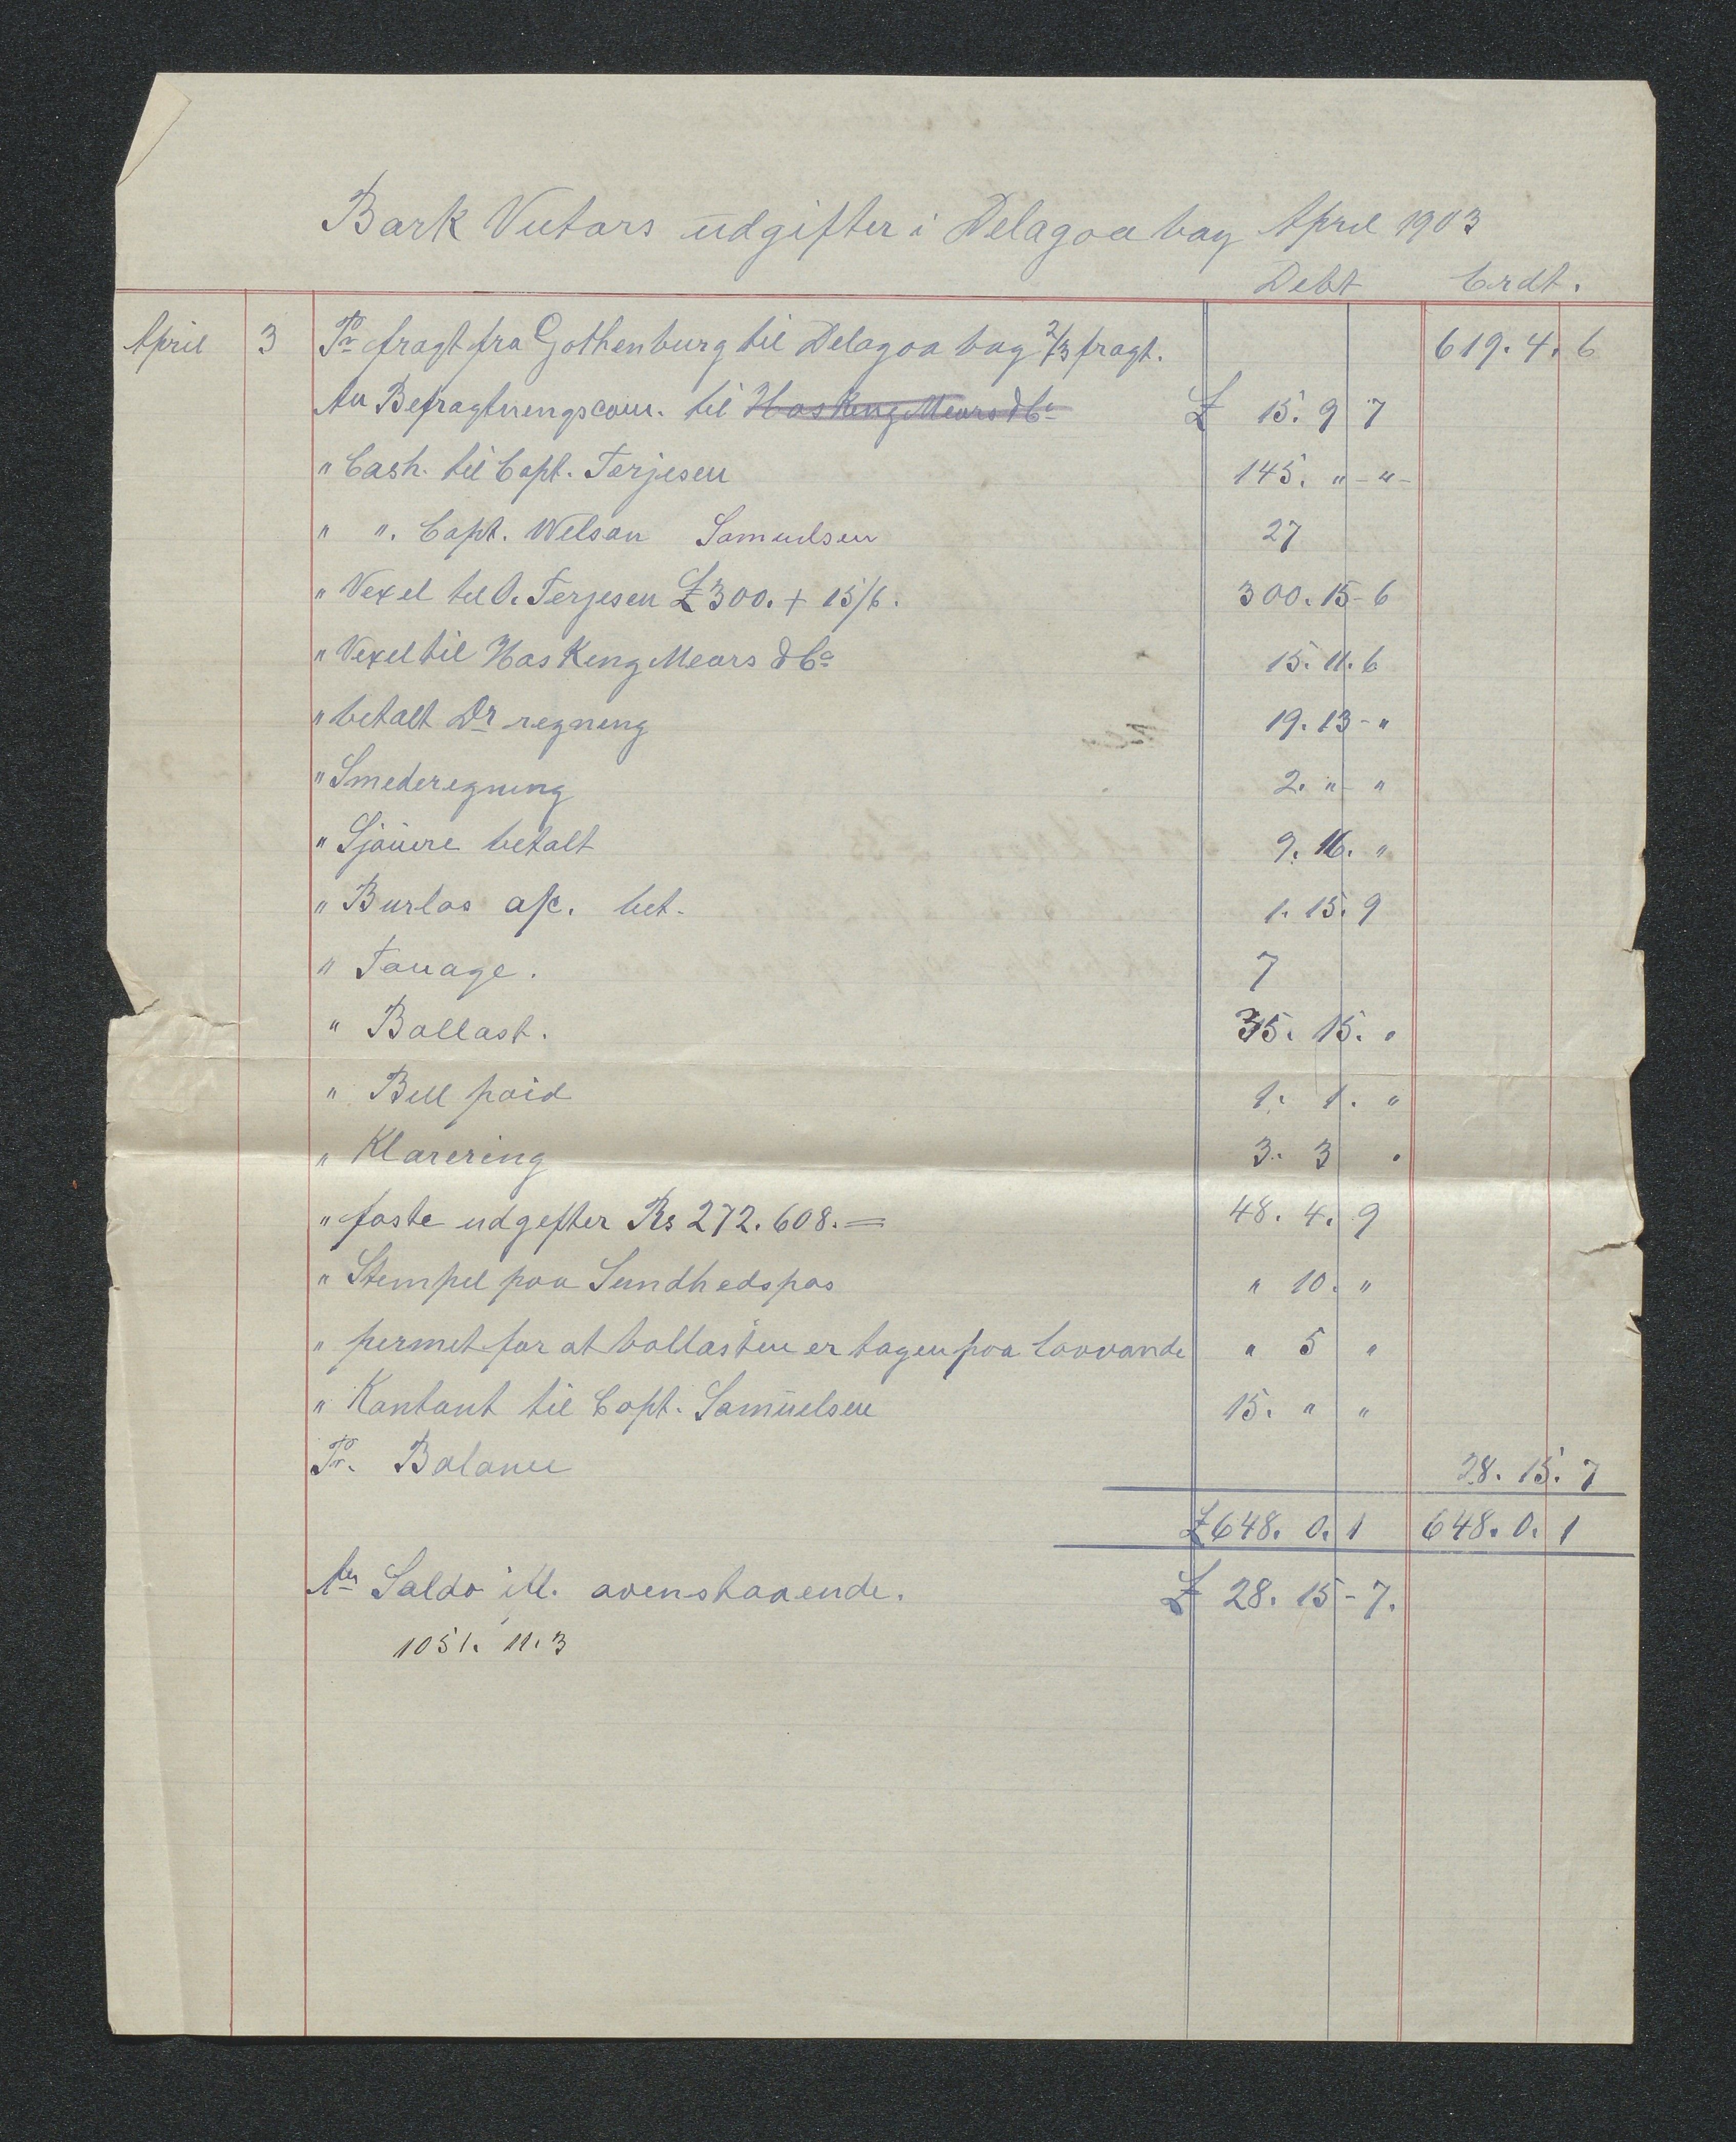 Bark Victors udgifter i Delagoa bay April 1903
Debt Crdt.
April 3 Pr fragt fra Gothenburg til Delagoa bay 2/3 fragt. 619. 4. 6
An Befragtningscom. til Hasking Mears & Co £ 15. 9 7
" Cash. til Capt. Terjesen 145. " - " -
" ". Capt. Welson Samuelsen 27
" Vexel til O. Terjesen £300. + 15/6. 300. 15 - 6
" Vexel til Hasking Mears & Co 15. 11. 6
" betalt Dr regning 19. 13 - "
" Smederegning 2. " - "
" Sjauere betalt 9. 16. "
" Burlas a/c. bet. 1. 15. 9
" Touage. 7
" Ballast. 35. 15. "
" Bill paid 1. 1. "
" Klarering 3. 3 "
" faste udgifter Rs 272.608.= 48. 4. 9
" Stempel paa Sundhedspas " 10. "
" permit for at ballasten er tagen paa Lavvande " 5 "
" Kontant til Capt. Samuelsen 15. " "
Pr. Balance 28. 15. 7
£648. 0. 1 648. 0. 1
An Saldo ovenstaaende. £ 28. 15 - 7.
1051. 11. 3